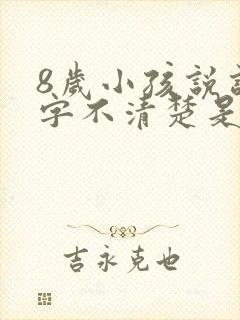 8歲小孩說
字不清楚是
吉永克也